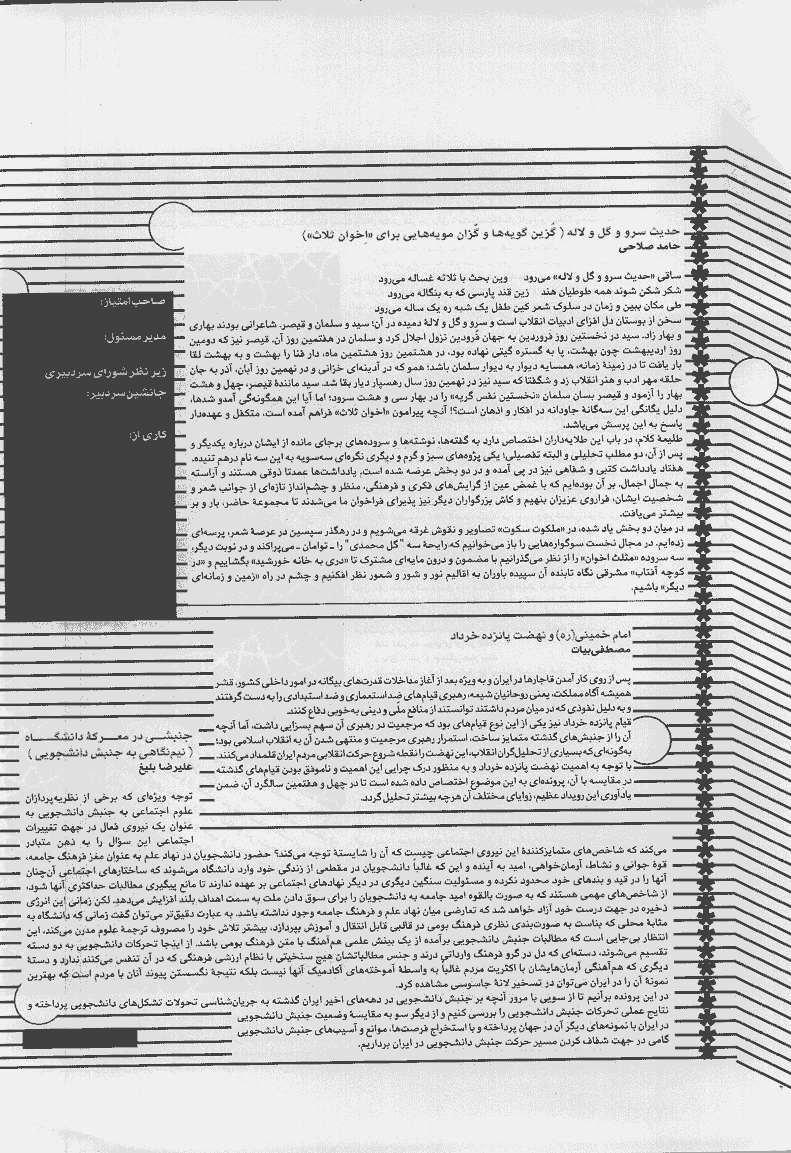 حدیث سرو و گل و لاله ( گزین گویه‌ها و گزان مویه‌هایی برای «اخوان ثلاث»)
حامد صلاحی
ساقی «حدیث سرو و گل و لاله» می‌رود وین بحث با ثلاثه غساله می‌رود
شکر شکن شوند همه طوطیان هند زین قند پارسی که به بنگاله می‌رود
طی مکان ببین و زمان در سلوک شعر کین طفل یک شبه ره یک ساله می‌رود
سخن از بوستان دل افزای ادبیات انقلاب است و سرو و گل و لالهٔ دمیده در آن؛ سید و سلمان و قیصر. شاعرانی بودند بهاری
و بهار زاد. سید در نخستین روز فروردین به جهان فرودین نزول اجلال کرد و سلمان در هفتمین روز آن. قیصر نیز که دومین
روز اردیبهشت چون بهشت، پا به گستره گیتی نهاده بود، در هشتمین روز هشتمین ماه، دار فنا را بهشت و به بهشت لقا
بار یافت تا در زمینهٔ زمانه، همسایه دیوار به دیوار سلمان باشد؛ همو که در آدینه‌ای خزانی و در نهمین روز آبان، آذر به جان
حلقه مهر ادب و هنر انقلاب زد و شگفتا که سید نیز در نهمین روز سال رهسپار دیار بقا شد. سید مانندهٔ قیصر، چهل و هشت
بهار را آزمود و قیصر بسان سلمان «نخستین نفس گریه» را در بهار سی و هشت سرود؛ اما آیا این همگونه‌گی آمدو شدها،
دلیل یگانگی این سه‌گانهٔ جاودانه در افکار و اذهان است؟! آنچه پیرامون «اخوان ثلاث» فراهم آمده است، متکفل و عهده‌دار
پاسخ به این پرسش می‌باشد.
طلیعهٔ کلام، در باب این طلایه‌داران اختصاص دارد به گفته‌ها، نوشته‌ها و سروده‌های برجای مانده از ایشان درباره یکدیگر و
پس از آن، دو مطلب تحلیلی و البته تفصیلی؛ یکی پژوه‌های سبز و گرم و دیگری نگره‌ای سه‌سویه به این سه نام درهم تنیده.
هفتاد یادداشت کتبی و شفاهی نیز در پی آمده و در دو بخش عرضه شده است. یادداشت‌ها عمدتا ذوقی هستند و آراسته
به جمال اجمال. بر آن بوده‌ایم که با غمض عین از گرایش‌های فکری و فرهنگی، منظر و چشم‌انداز تازه‌ای از جوانب شعر و
شخصیت ایشان، فراروی عزیزان بنهیم و کاش بزرگواران دیگر نیز پذیرای فراخوان ما می‌شدند تا مجموعهٔ حاضر، بار و بر
بیشتر می‌یافت.
در میان دو بخش یاد شده، در «ملکوت سکوت» تصاویر و نقوش غرقه می‌شویم و در رهگذر سپسین در عرصهٔ شعر، پرسه‌ای
زده‌ایم. در مجال نخست سوگواره‌هایی را باز می‌خوانیم که رایحهٔ سه "گل محمدی" را ـ توامان ـ می‌پراکند و در نوبت دیگر،
سه سروده «مثلث اخوان» را از نظر می‌گذرانیم با مضمون و درون مایه‌ای مشترک تا «دری به خانه خورشید» بگشاییم و «در
کوچه آفتاب» مشرقی نگاه تابنده آن سپیده باوران به اقالیم نور و شور و شعور نظر افکنیم و چشم در راه «زمین و زمانه‌ای
دیگر» باشیم.
صاحب امتیاز:
مدیر مسئول:
زیر نظر شورای سردبیری
جانشین سردبیر:
کاری از:
امام خمینی(ره) و نهضت پانزده خرداد
مصطفی بیات
پس از روی کار آمدن قاجارها در ایران و به ویژه بعد از آغاز مداخلات قدرت‌های بیگانه در امور داخلی کشور، قشر
همیشه آگاه مملکت، یعنی روحانیان شیعه، رهبری قیام‌های ضد استعماری و ضد استبدادی را به دست گرفتند
و به دلیل نفوذی که در میان مردم داشتند توانستند از منافع ملی و دینی به‌خوبی دفاع کنند.
قیام پانزده خرداد نیز یکی از این نوع قیام‌های بود که مرجعیت در رهبری آن سهم بسزایی داشت، اما آنچه
آن را از جنبش‌های گذشته متمایز ساخت، استمرار رهبری مرجعیت و منتهی شدن آن به انقلاب اسلامی بود؛
به‌گونه‌ای که بسیاری از تحلیل‌گران انقلاب، این نهضت را نقطه شروع حرکت انقلابی مردم ایران قلمداد می‌کنند.
با توجه به اهمیت نهضت پانزده خرداد و به منظور درک چرایی این اهمیت و ناموفق بودن قیام‌های گذشته
در مقایسه با آن، پرونده‌ای به این موضوع اختصاص داده شده است تا در چهل و هفتمین سالگرد آن، ضمن
یادآوری این رویداد عظیم، زوایای مختلف آن هرچه بیشتر تحلیل گردد.
جنبشی در معرکهٔ دانشگاه
( نیم‌نگاهی به جنبش دانشجویی )
علیرضا بلیغ
توجه ویژه‌ای که برخی از نظریه‌پردازان
علوم اجتماعی به جنبش دانشجویی به
عنوان یک نیروی فعال در جهت تغییرات
اجتماعی این سؤال را به ذهن متبادر
می‌کند که شاخص‌های متمایزکنندهٔ این نیروی اجتماعی چیست که آن را شایستهٔ توجه می‌کند؟ حضور دانشجویان در نهاد علم به عنوان مغز فرهنگ جامعه،
قوهٔ جوانی و نشاط، آرمان‌خواهی، امید به آینده و این که غالباً دانشجویان در مقطعی از زندگی خود وارد دانشگاه می‌شوند که ساختارهای اجتماعی آن‌چنان
آنها را در قید و بندهای خود محدود نکرده و مسئولیت سنگین دیگری در دیگر نهادهای اجتماعی بر عهده ندارند تا مانع پیگیری مطالبات حداکثری آنها شود،
از شاخص‌های مهمی هستند که به صورت بالقوه امید جامعه به دانشجویان را برای سوق دادن ملت به سمت اهداف بلند افزایش می‌دهد. لکن زمانی این انرژی
ذخیره در جهت درست خود آزاد خواهد شد که تعارضی میان نهاد علم و فرهنگ جامعه وجود نداشته باشد. به عبارت دقیق‌تر می‌توان گفت زمانی که دانشگاه به
مثابهٔ محلی که بناست به صورت‌بندی نظری فرهنگ بومی در قالبی قابل انتقال و آموزش بپردازد، بیشتر تلاش خود را مصروف ترجمهٔ علوم مدرن می‌کند، این
انتظار بی‌جایی است که مطالبات جنبش دانشجویی برآمده از یک بینش علمی هم‌آهنگ با متن فرهنگ بومی باشد. از اینجا تحرکات دانشجویی به دو دسته
تقسیم می‌شوند، دسته‌ای که دل در گرو فرهنگ وارداتی دارند و جنس مطالباتشان هیچ سنخیتی با نظام ارزشی فرهنگی که در آن تنفس می‌کنند ندارد و دستهٔ
دیگری که هم‌آهنگی آرمان‌هایشان با اکثریت مردم غالباً به واسطهٔ آموخته‌های آکادمیک آنها نیست بلکه نتیجهٔ نگسستن پیوند آنان با مردم است که بهترین
نمونهٔ آن را در ایران می‌توان در تسخیر لانهٔ جاسوسی مشاهده کرد.
در این پرونده برآنیم تا از سویی با مرور آنچه بر جنبش دانشجویی در دهه‌های اخیر ایران گذشته به جریان‌شناسی تحولات تشکل‌های دانشجویی پرداخته و
نتایج عملی تحرکات جنبش دانشجویی را بررسی کنیم و از دیگر سو به مقایسهٔ وضعیت جنبش دانشجویی
در ایران با نمونه‌های دیگر آن در جهان پرداخته و با استخراج فرصت‌ها، موانع و آسیب‌های جنبش دانشجویی
گامی در جهت شفاف کردن مسیر حرکت جنبش دانشجویی در ایران برداریم.